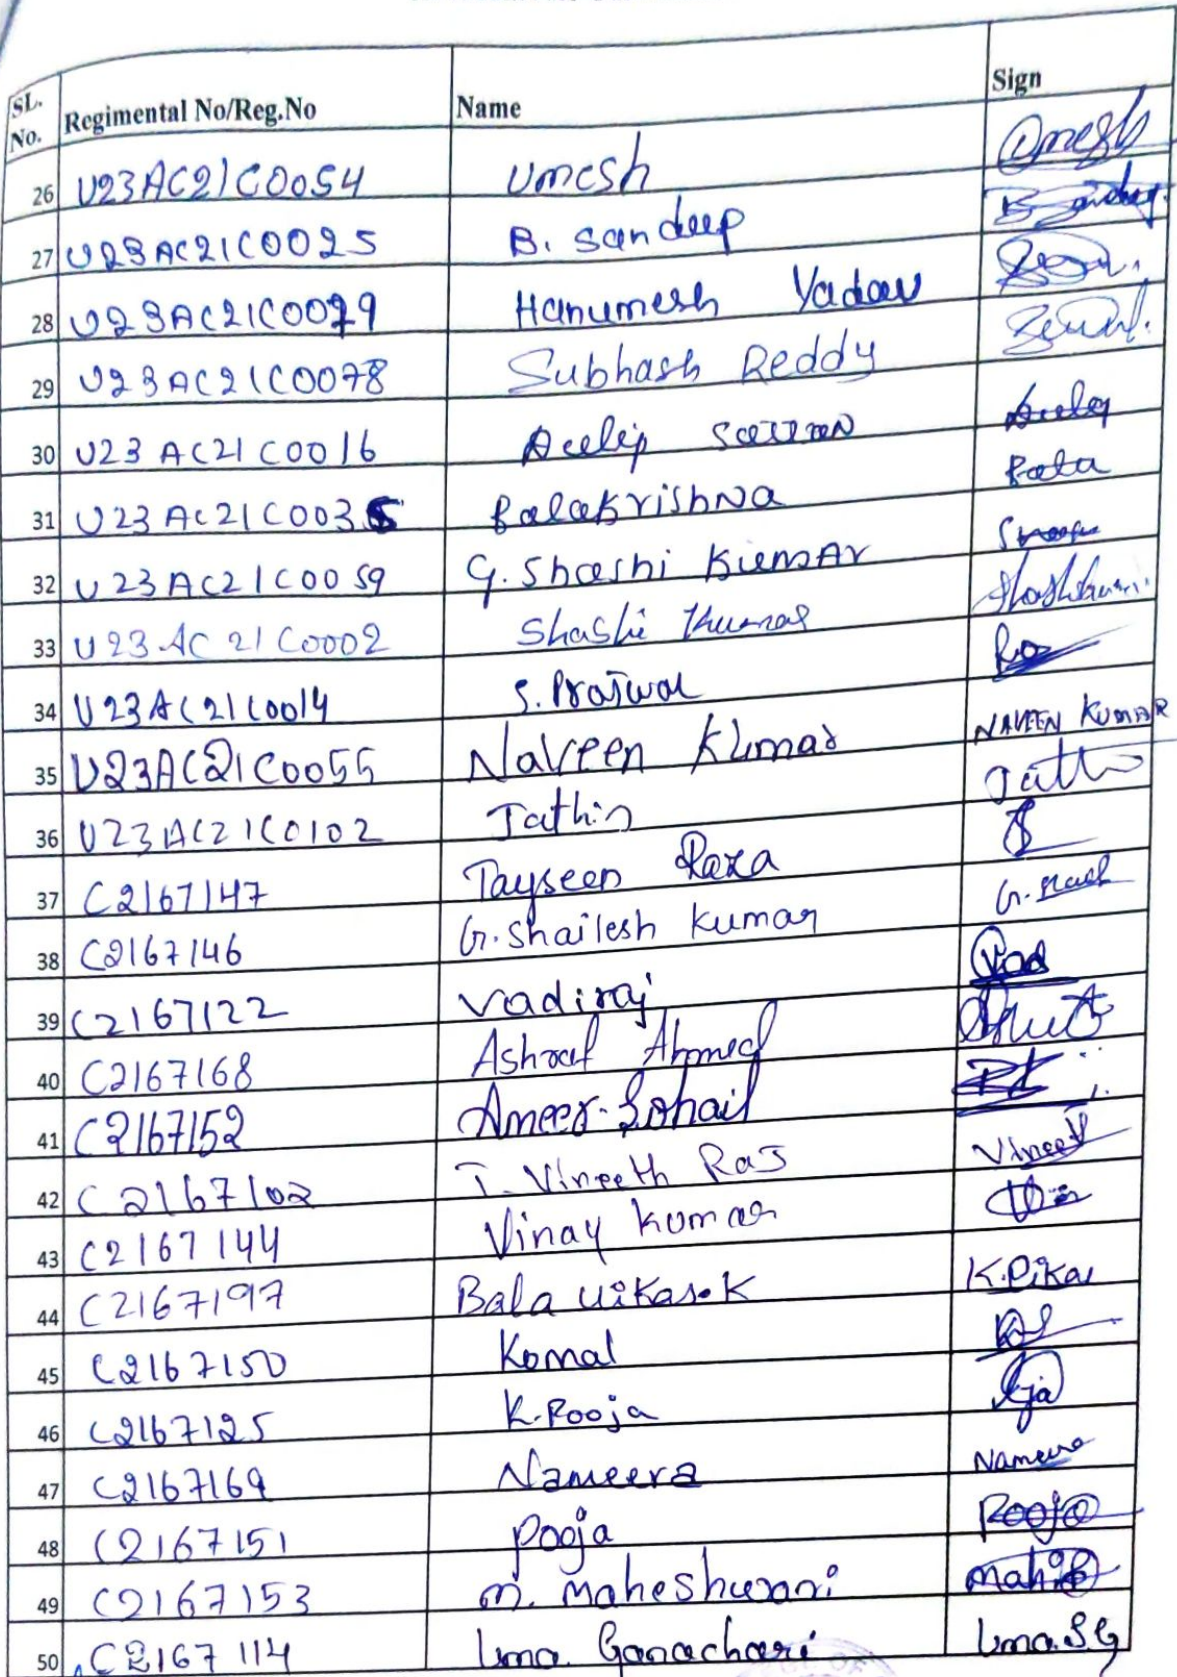 SL. No. Regimental No/Reg.No Name Sign
26 U23AC21C0054 Umesh Umesh
27 U23AC21C0025 B. Sandeep
28 U23AC21C0079 Hanumesh Yadav
29 U23AC21C0078 Subhash Reddy
30 U23AC21C0016
31 U23AC21C0035 BalakrishNa Bala
32 U23AC21C0059 G. Shashi KumAr
33 U23AC21C0002 Shashi Kumar
34 U23AC21C0014 S. Prajwal
35 U23AC21C0055 Naveen Kumar NAVEEN KUMAR
36 U23AC21C0102 Jathin
37 C2167147 Tayseen Raza
38 C2167146 G. Shailesh Kumar
39 C2167122 Vadiraj Vad
40 C2167168 Ashraf Ahmed
41 C2167152 Ameer Sohail
42 C2167102 T. Vineeth Raj Vineeth
43 C2167144 Vinay Kumar
44 C2167197 Bala vikas.K K.Vikas
45 C2167150 Komal
46 C2167125 K. Pooja
47 C2167169 Nameera Nameera
48 C2167151 Pooja Pooja
49 C2167153 M. Maheshwari
50 C2167114 Uma Ganachari Uma.S.G